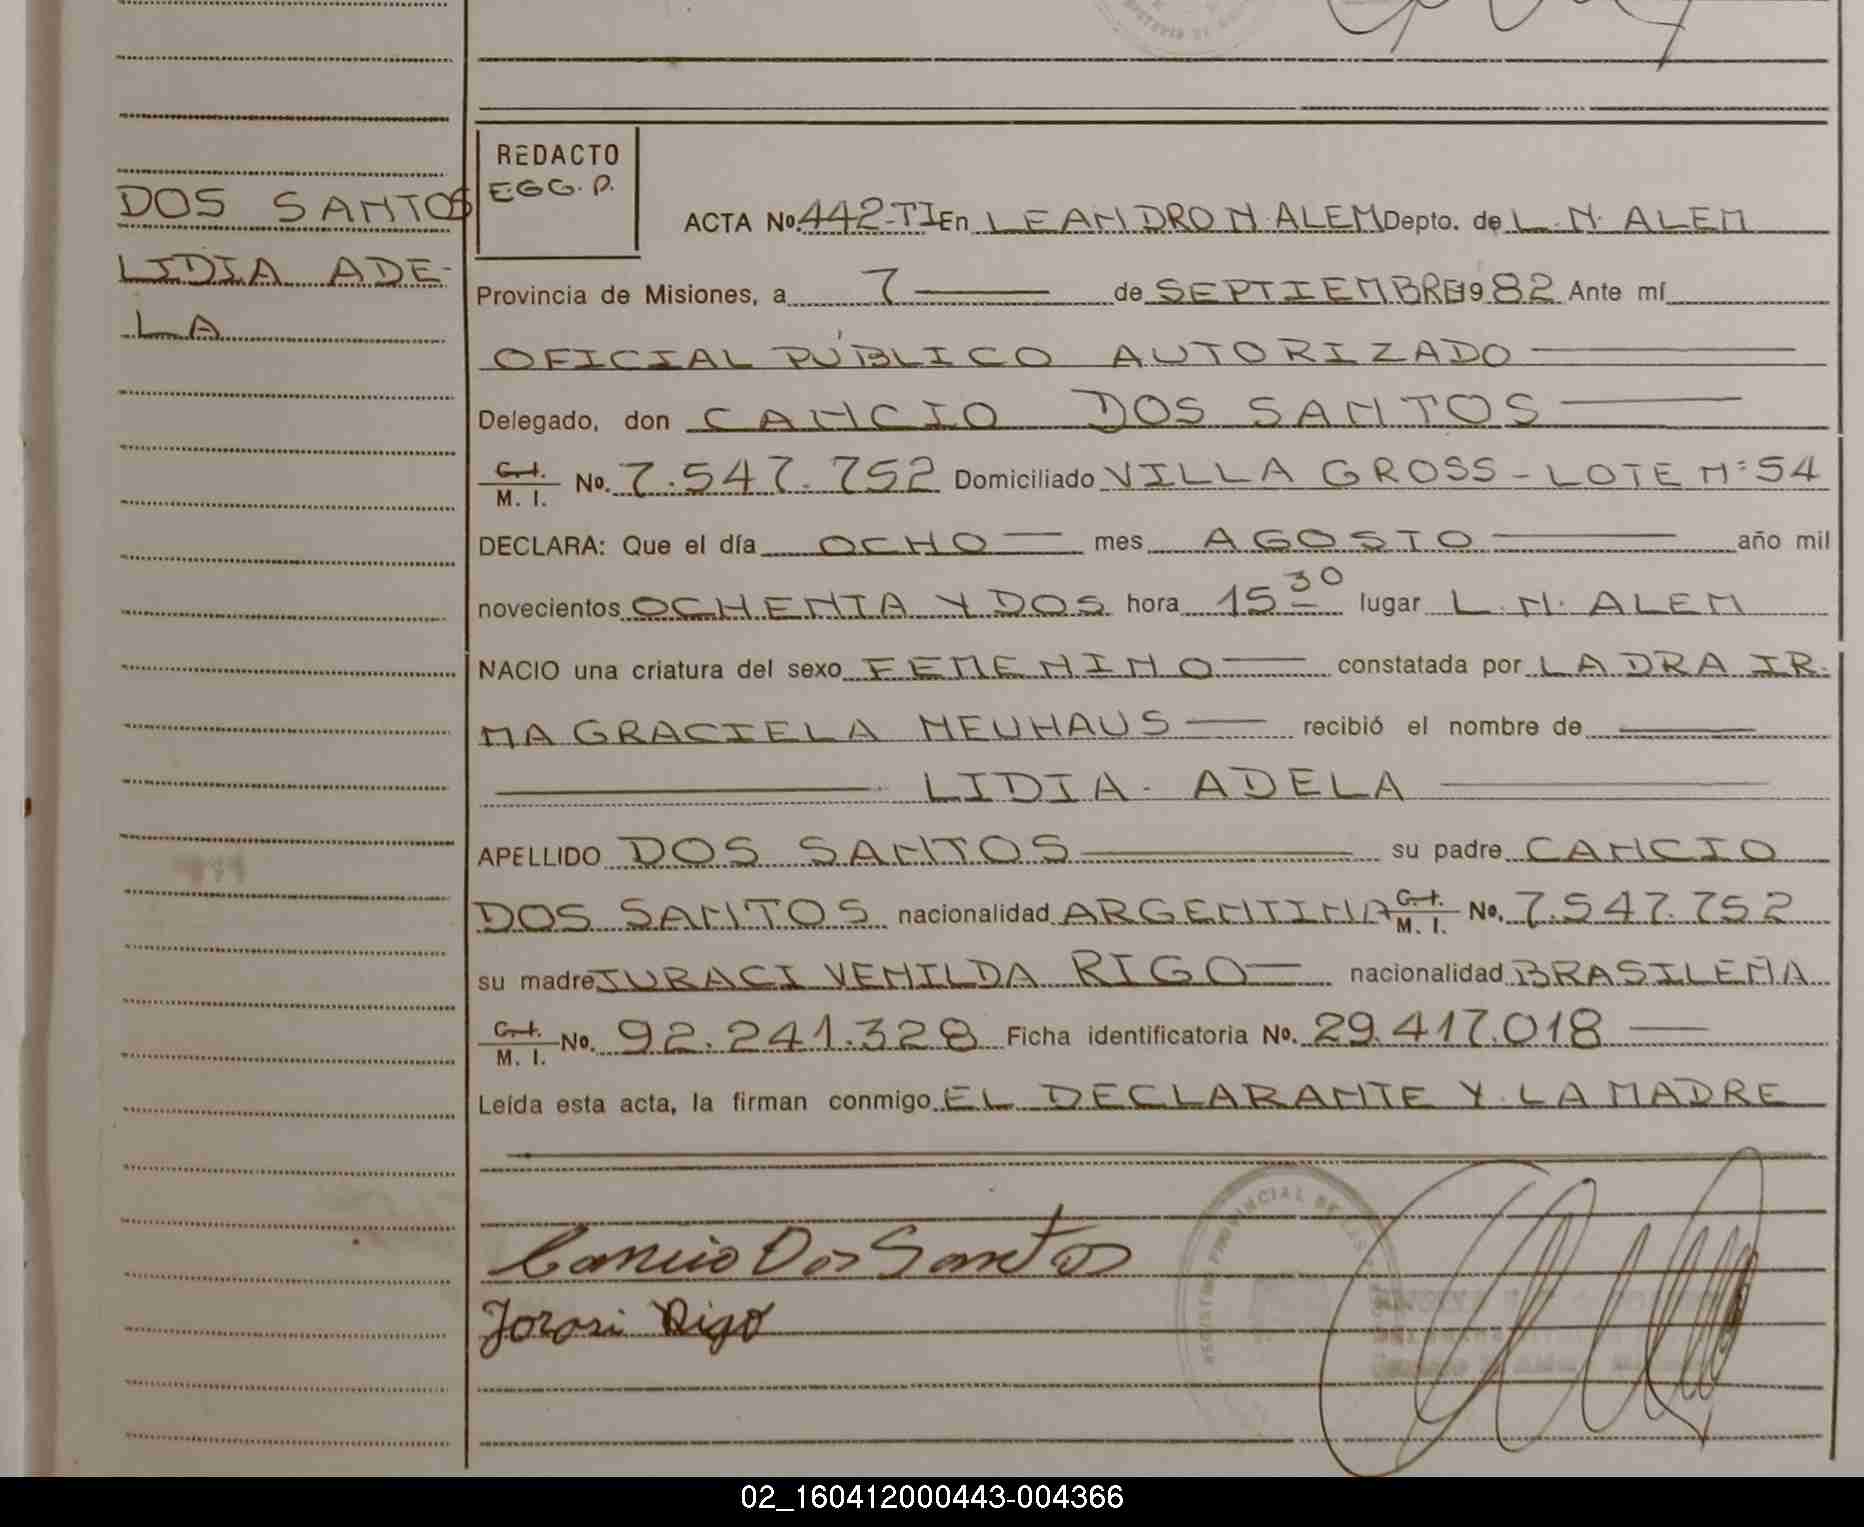 REDACTO
E.G.G.P.
DOS SANTOS
LIDIA ADE-
LA
ACTA No. 442-TI En LEANDRO N. ALEM Depto. de L. N. ALEM
Provincia de Misiones, a 7 de SEPTIEMBRE 1982 Ante mí
OFICIAL PÚBLICO AUTORIZADO
Delegado, don CANCIO DOS SANTOS
C. I. / M. I. No. 7.547.752 Domiciliado VILLA GROSS - LOTE Nº 54
DECLARA: Que el día OCHO mes AGOSTO año mil
novecientos OCHENTA Y DOS hora 15 30 lugar L. N. ALEM
NACIO una criatura del sexo FEMENINO constatada por LA DRA IR-
MA GRACIELA NEUHAUS recibió el nombre de
LIDIA ADELA
APELLIDO DOS SANTOS su padre CANCIO
DOS SANTOS nacionalidad ARGENTINA C. I. / M. I. No. 7.547.752
su madre JURACI VENILDA RIGO nacionalidad BRASILEÑA
C. I. / M. I. No. 92.241.328 Ficha identificatoria No. 29.417.018
Leída esta acta, la firman conmigo EL DECLARANTE Y LA MADRE
Cancio Dos Santos
Jorasi Rigo
02_160412000443-004366